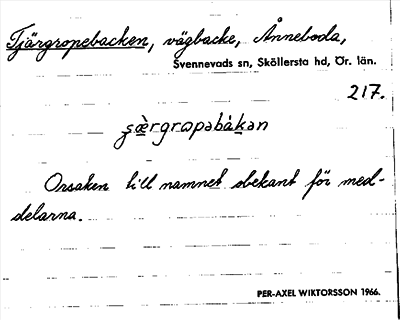 Tjärgropebacken, vägbacke, Ånneboda,
Svennevads sn, Sköllersta hd, Ör. län.
217.
Orsaken till namnet obekant för med-
delarna.
PER-AXEL WIKTORSSON 1966.